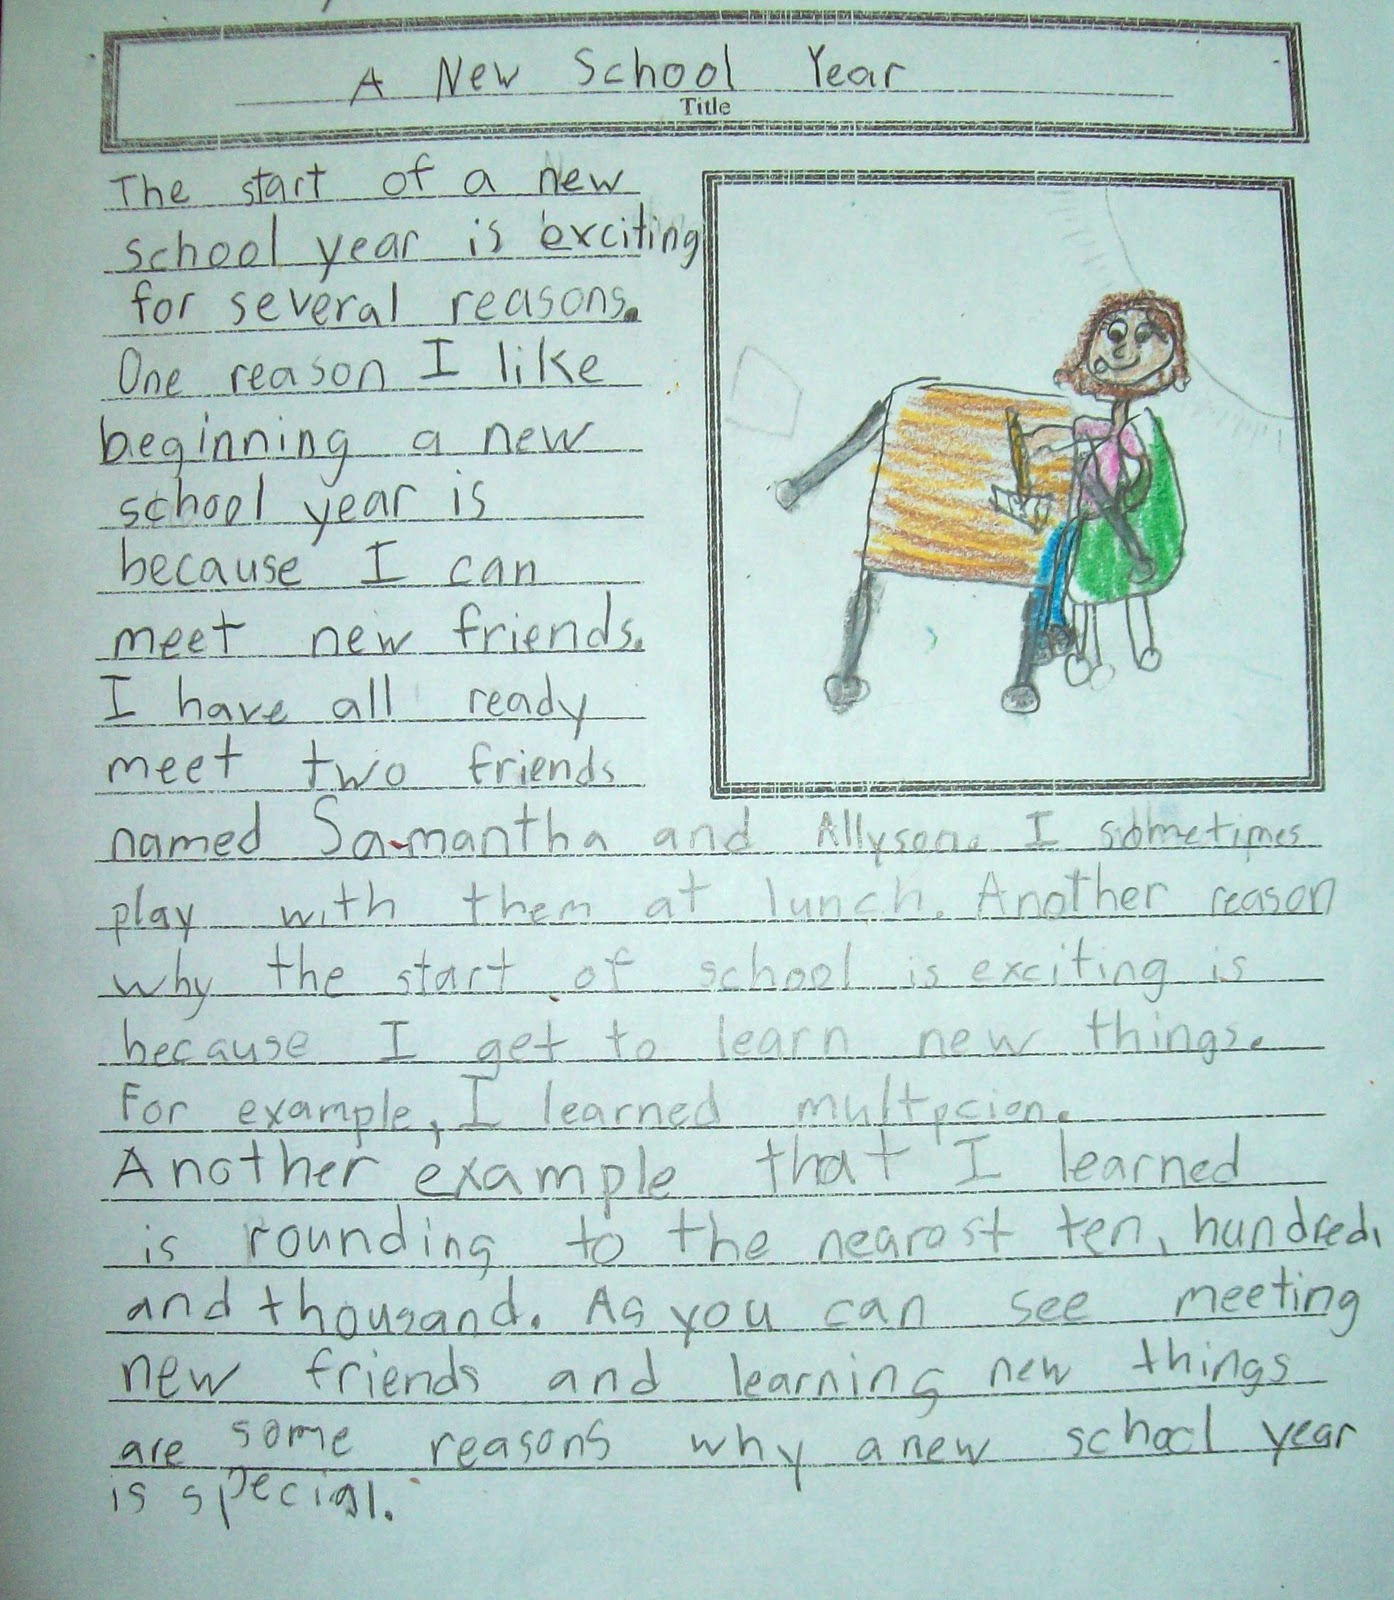 A New School Year
Title
The start of a new
school year is exciting
for several reasons.
One reason I like
beginning a new
school year is
because I can
meet new friends.
I have all ready
meet two friends
named Samantha and Allyson. I sometimes
play with them at lunch. Another reason
why the start of school is exciting is
because I get to learn new things.
For example, I learned multpcion.
Another example that I learned
is rounding to the nearost ten, hundred,
and thousand. As you can see meeting
new friends and learning new things
are some reasons why a new school year
is special.